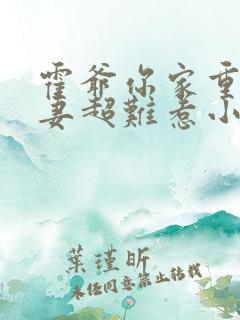 霍爷你家重
妻超難惹小
葉瑾昕
未经同意禁止转载